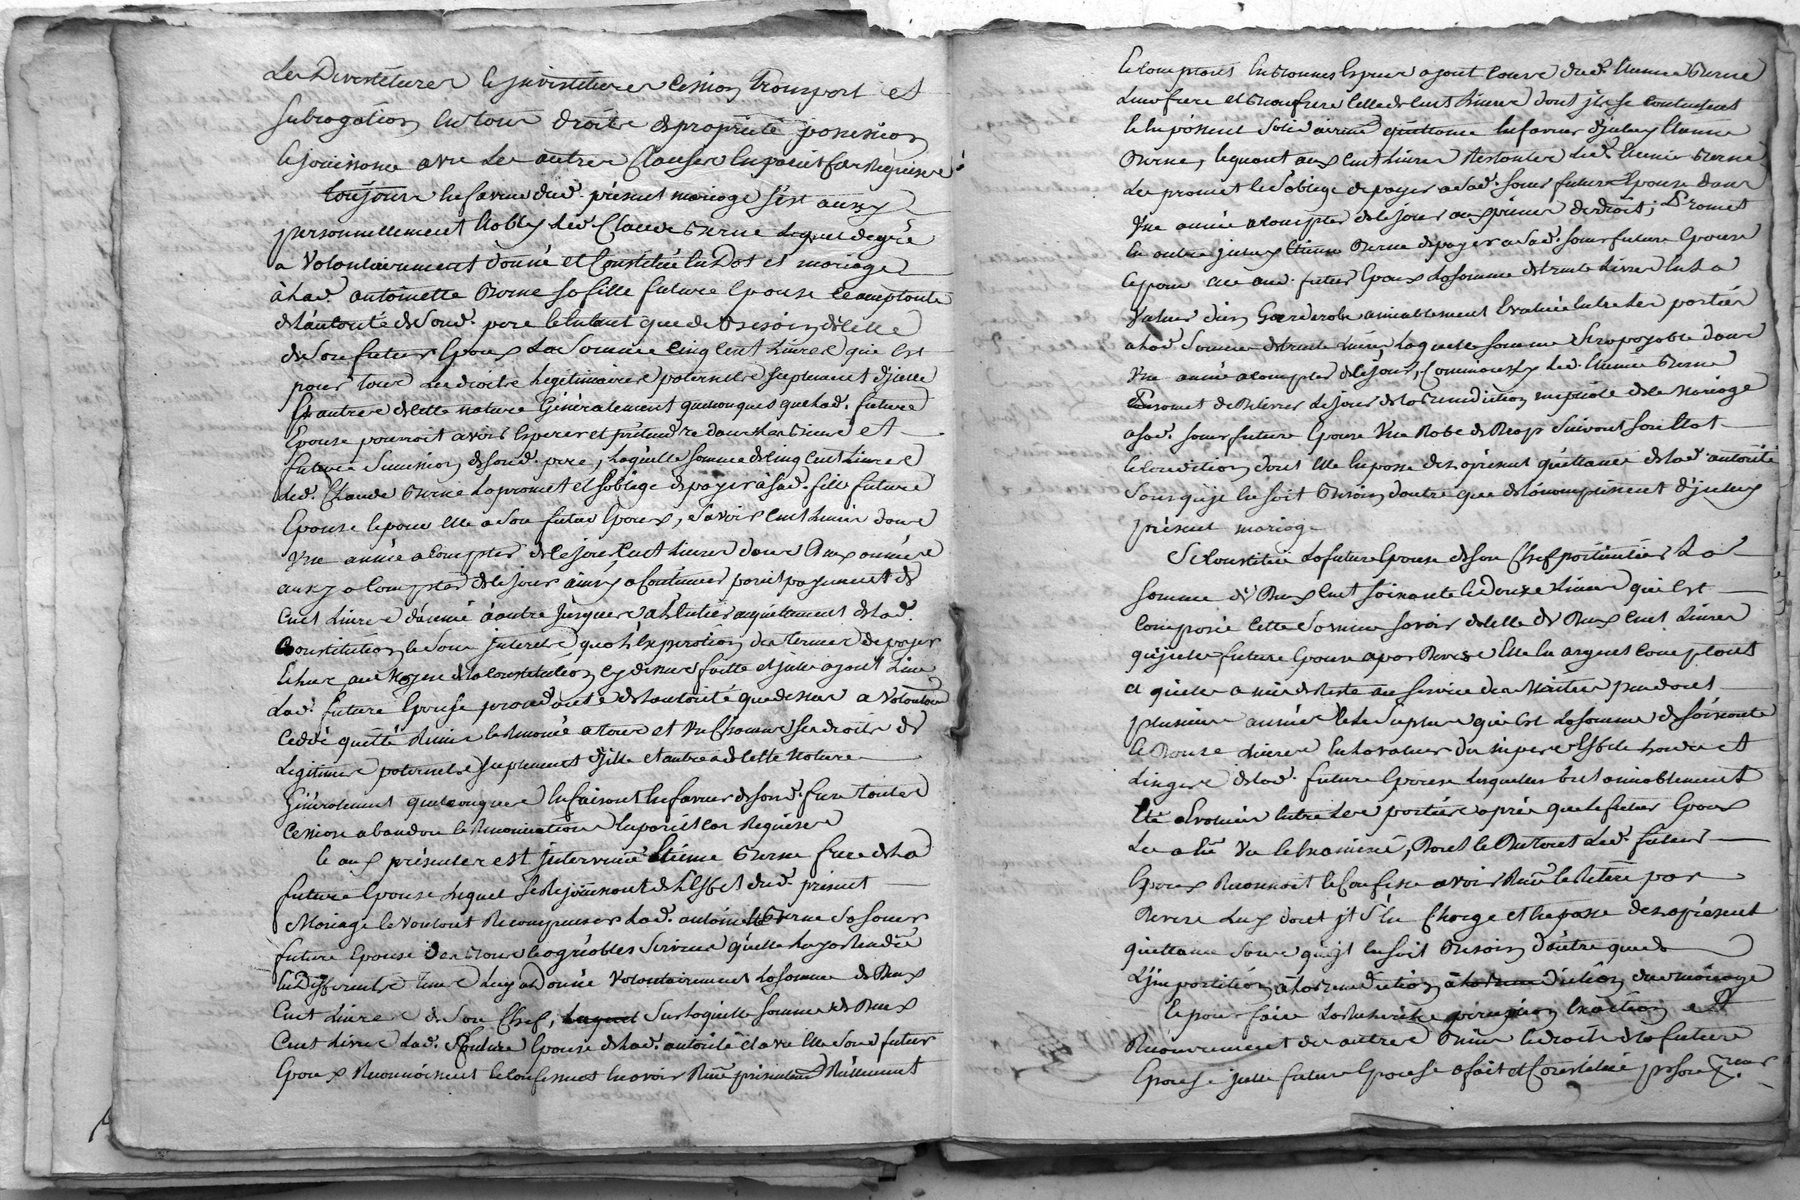 Les Divestitures & Investitures Cession Transport et
subrogation en tous droits de propriété possession
& jouissance avec les autres Clauses en pareil fait Requises
toujours en faveur dud. présent mariage s'est aussy
personnellement Etably led. Claude Berne Lequel de gré
a volontairement donné et Constitué en Dot et mariage
à Lad. antoinette Berne sa fille future Epouse acceptante
de l'autorité de sond. pere & entant que de besoin de celle
de son futur Epoux La somme cinq cent Livres qui est
pour tous Les droits Legitimaires paternels suplement d'jcelle
& autres de cette nature Généralement quelconques que Lad. future
Epouse pourroit avoir Esperer et prétendre dans les Biens et
future succession de sond. pere, Laquelle somme de cinq cent Livres
led. Claude Berne La promet et s'oblige de payer à sad. fille future
Epouse & pour elle a son futur Epoux, sçavoir cent Livres dans
Une année a compter de ce jour cent Livres dans deux années
aussy a compter de ce jour ainsy a continuer pareil payement de
cent Livres d'année à autre jusques a l'entier acquittement de Lad.
Constitution & sous jnterets qu'a L'expiration des termes de payer
Echus au moyen de la Constitution cy dessus faitte et jcelle ayant Lieu
Lad. future Epouse procedante de l'autorité que dessus a volontair
Cedé quitté Remis & Renoncé a tous et un chacuns ses droits de
Legitime paternels suplement d'jcelle et autres de cette nature
Généralement quelconques En faisant En faveur de sond. pere toutes
Cession abandon & Renonciation En pareil cas Requises
& aux présentes est jntervenu Etienne Berne frere de La
future Epouse Lequel se Rejouissant de L'Effet dud. présent
Mariage & voulant Recompenser Lad. antoinette Berne sa soeur
future Epouse des Bons & agréables services qu'elle Luy a Rendu
En Differents tems Luy a Donné volontairement La somme de Deux
Cent Livres de son Chef, Sur Laquelle somme de Deux
Cent Livres Lad. future Epouse de Lad. autorité et avec elle sond. futur
Epoux Reconnoissent & Confessent En avoir Reçu présentement Réellement
& Comptant En Bonnes Espèces ayant cours dud. Etienne Berne
Leur frere et Beaufrere Celle de Cent Livres dont jls se Contentent
& En passent solidairement quittance En faveur d'jceluy Etienne
Berne, & quant aux Cent Livres Restantes Led. Etienne Berne
Les promet & s'oblige de payer a sad. soeur future Epouse dans
Une année a compter de ce jour aux peines de droit; Promet
En outre jceluy Etienne Berne de payer a sad. soeur future Epouse
& pour elle aud. futur Epoux La somme de trente Livres En La
Valeur d'un Garderobe amiablement Evalué Entre Les parties
a Lad. somme de trente Livres Laquelle somme sera payable dans
Une année a compter de ce jour, Comme aussy Led. Etienne Berne
Promet de Delivrer Le jour de la Benediction nuptiale de ce mariage
a sad. soeur future Epouse Une Robe de Drap suivant son Etat
& Condition dont elle En passe dez aprésent quittance de Lad. autorité
sans qu'jl En soit Besoin d'autre que de L'accomplissement d'jceluy
présent mariage
Se Constitue La future Epouse de son Chef particulier La
somme de Deux Cent soixante & Douze Livres qui est
Composée Cette somme savoir de Celle de Deux Cent Livres
qu'jcelle future Epouse a par Devers elle En argent Comptant
et qu'elle a mis de Reste au service des Maitres pendant
plusieurs années & Le surplus qui est La somme de soixante
& Douze Livres En La valeur de ses habits hardes et
Linges de Lad. future Epouse Lesquels ont amiablement
été évalués Entre Les parties après que Le futur Epoux
Les a Eu Vu & Examiné, Dont & Du tout Led. futur
Epoux Reconnoit & Confesse avoir Reçu & Retiré par
Devers Luy dont jl s'En Charge et En passe dez aprésent
quittance sans qu'jl En soit Besoin d'autre que de
L'jmpartition a la Benediction a la Benediction du mariage
& pour faire La Recherche perception Exaction et
Recouvrement des autres Biens & droits de la future
Epouse jcelle future Epouse a fait et Constitué pr son Pr.